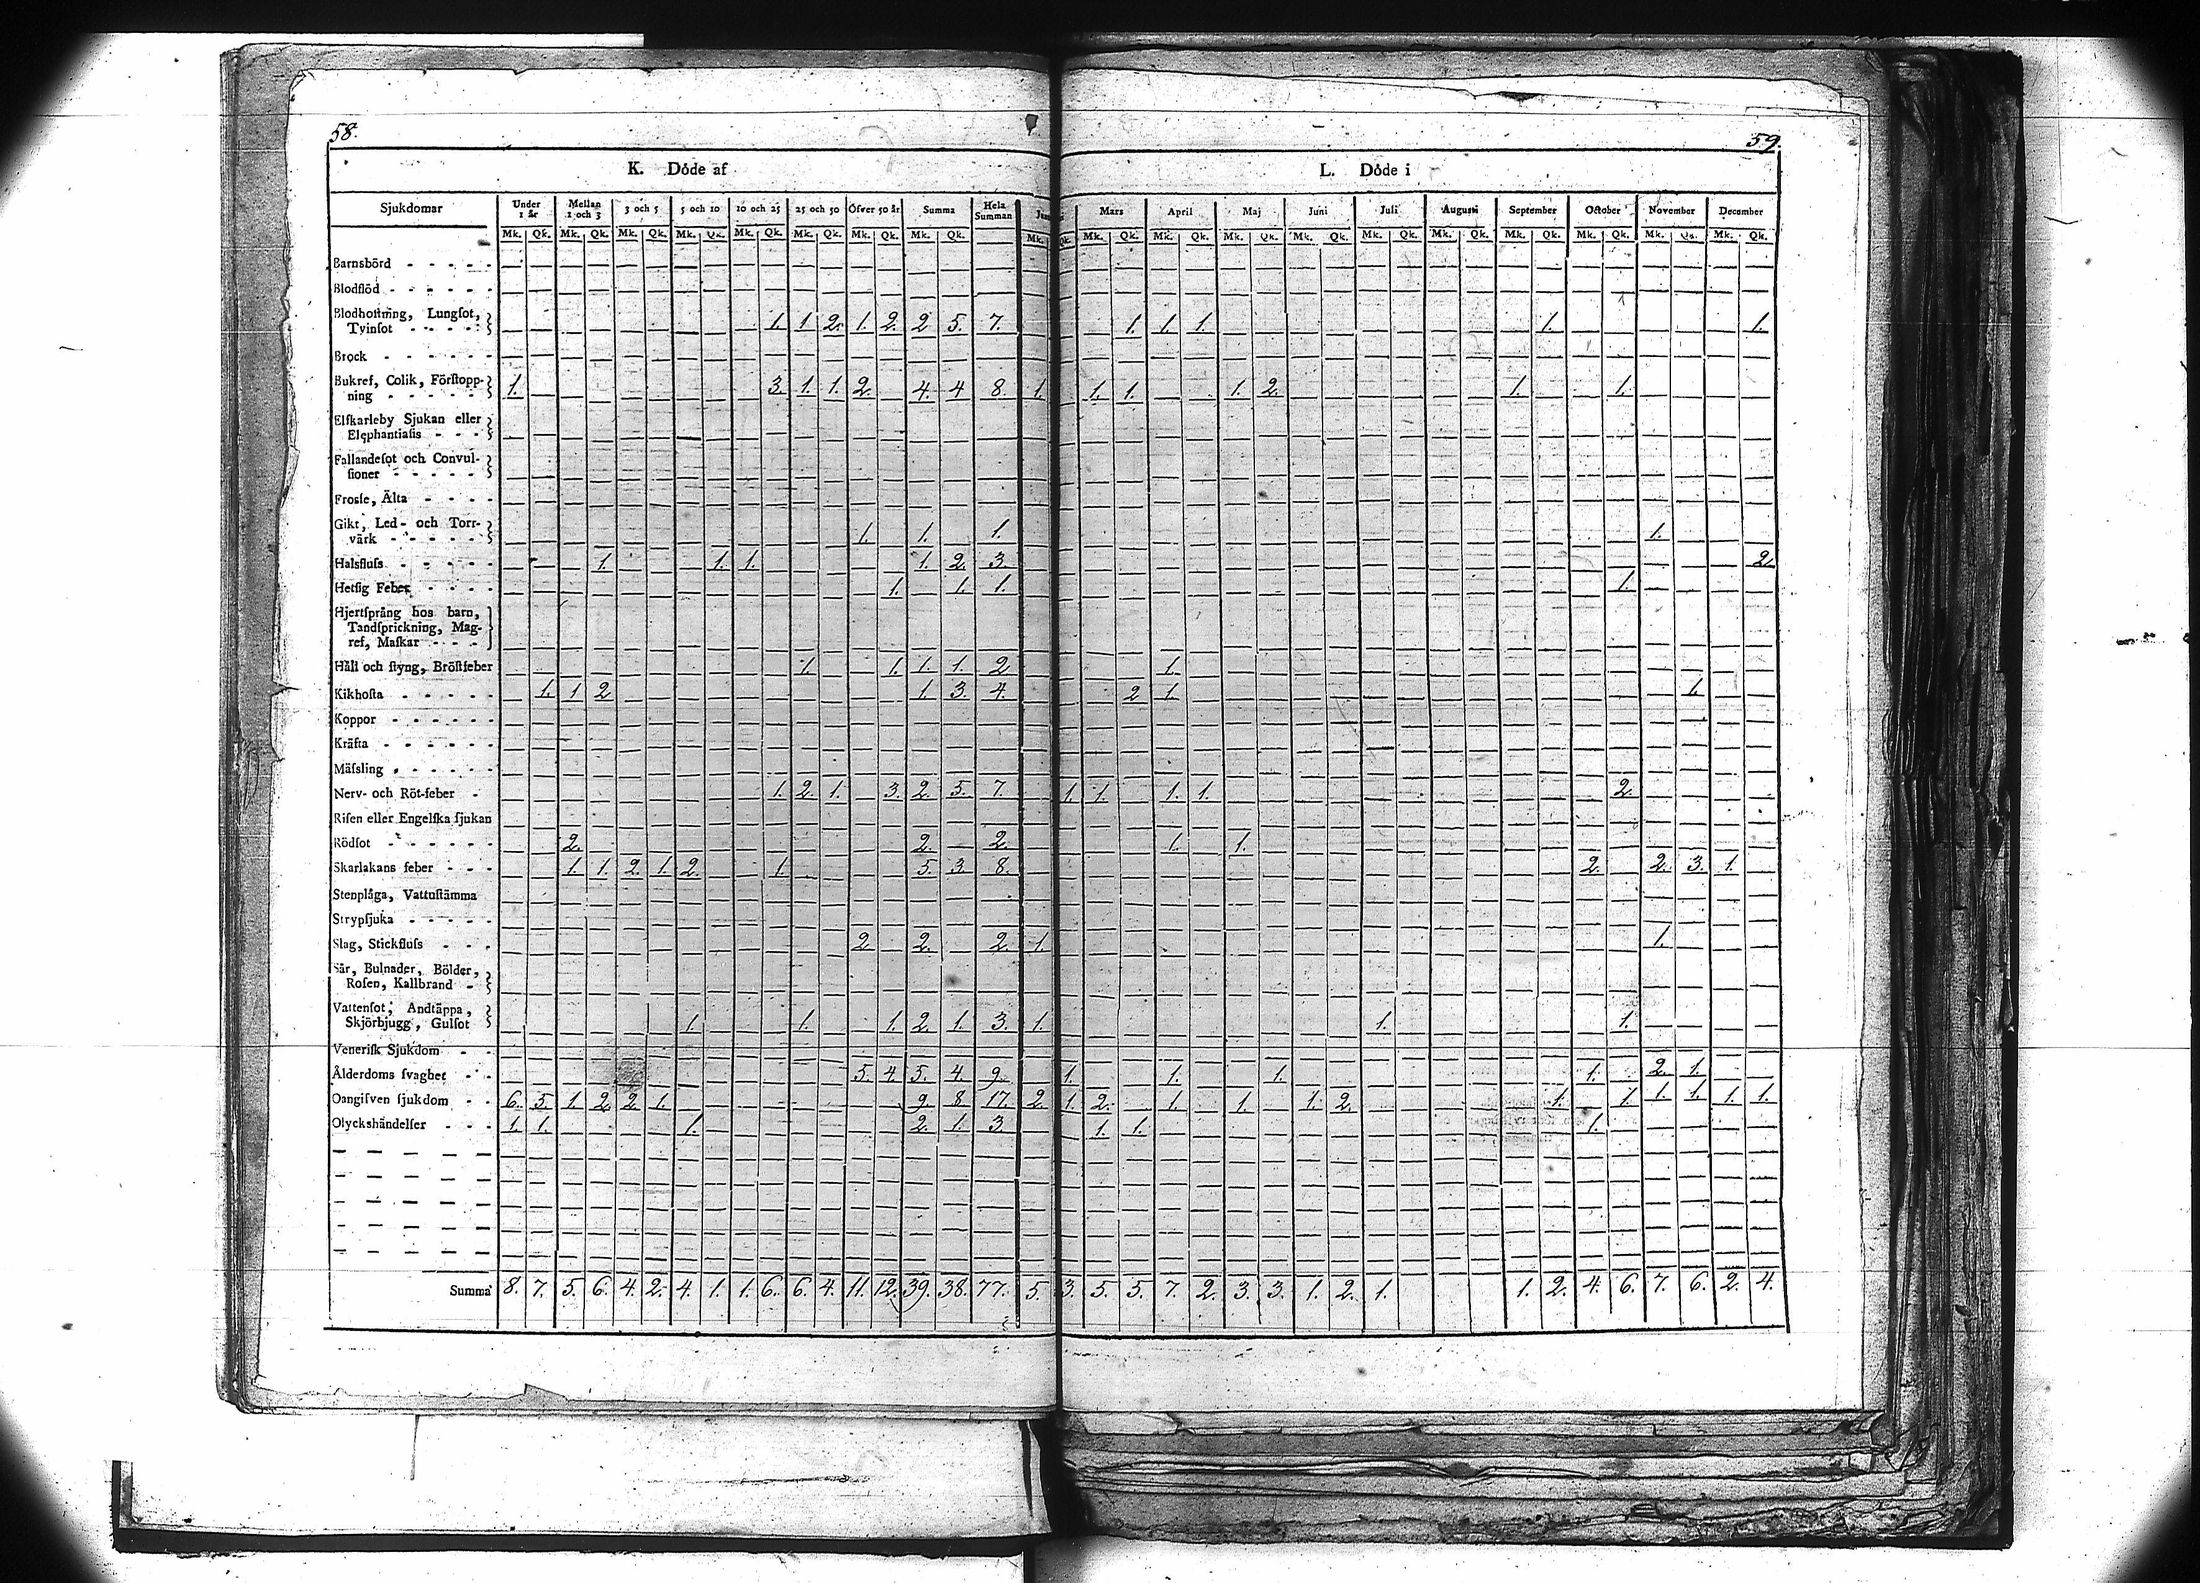 58.
59.
K. Döde af
L. Döde i
Sjukdomar Under 1 år Mellan 1 och 3 3 och 5 5 och 10 10 och 25 25 och 50 Öfver 50 år Summa Hela Summan Mars April Maj Juni Juli Augusti September October November December
Mk. Qk. Mk. Qk. Mk. Qk. Mk. Qk. Mk. Qk. Mk. Qk. Mk. Qk. Mk. Qk. Mk. Qk. Mk. Qk. Mk. Qk. Mk. Qk. Mk. Qk. Mk. Qk. Mk. Qk. Mk. Qk. Mk. Qk. Mk. Qk. Mk. Qk.
Barnsbörd
Blodflöd
Blodhostning, Lungsot,
Tvinsot 1. 1 2. 1. 2. 2 5. 7. 1. 1. 1. 1. 1.
Brock
Bukref, Colik, Förstopp-
ning 1. 3. 1. 1. 2. 4. 4 8. 1. 1. 1. 1. 2. 1. 1.
Elfkarleby Sjukan eller
Elephantiasis
Fallandesot och Convul-
sioner
Frosse, Älta
Gikt, Led- och Torr-
värk 1. 1. 1. 1.
Halsfluss 1. 1. 1. 1. 2. 3. 2.
Hetsig Feber 1. 1. 1. 1.
Hjertsprång hos barn,
Tandsprickning, Mag-
ref, Maskar
Håll och styng, Bröstfeber 1. 1. 1. 1. 2 1.
Kikhosta 1. 1 2 1. 3. 4. 2 1. 1.
Koppor
Kräfta
Mässling
Nerv- och Röt-feber 1. 2. 1. 3. 2. 5. 7. 1. 1. 1. 1. 2.
Risen eller Engelska sjukan
Rödsot 2. 2. 2. 1. 1.
Skarlakans feber 1. 1. 2. 1. 2. 1. 5. 3. 8. 2. 2. 3. 1.
Stenplåga, Vattustämma
Strypsjuka
Slag, Stickfluss 2 2. 2. 1. 1.
Sår, Bulnader, Bölder,
Rosen, Kallbrand
Vattensot, Andtäppa,
Skjörbjugg, Gulsot 1. 1. 1. 2. 1. 3. 1. 1. 1.
Venerisk Sjukdom
Ålderdoms svaghet 5. 4. 5. 4. 9. 1. 1. 1. 1. 2. 1.
Oangifven sjukdom 6. 5. 1. 2. 2. 1. 9. 8. 17. 2. 1. 2. 1. 1. 1. 2. 1. 1. 1. 1. 1. 1.
Olyckshändelser 1. 1. 1. 2. 1. 3. 1. 1. 1.
Summa 8. 7. 5. 6. 4. 2. 4. 1. 1. 6. 6. 4. 11. 12. 39. 38. 77. 5. 3. 5. 5. 7. 2. 3. 3. 1. 2. 1. 1. 2. 4. 6. 7. 6. 2. 4.